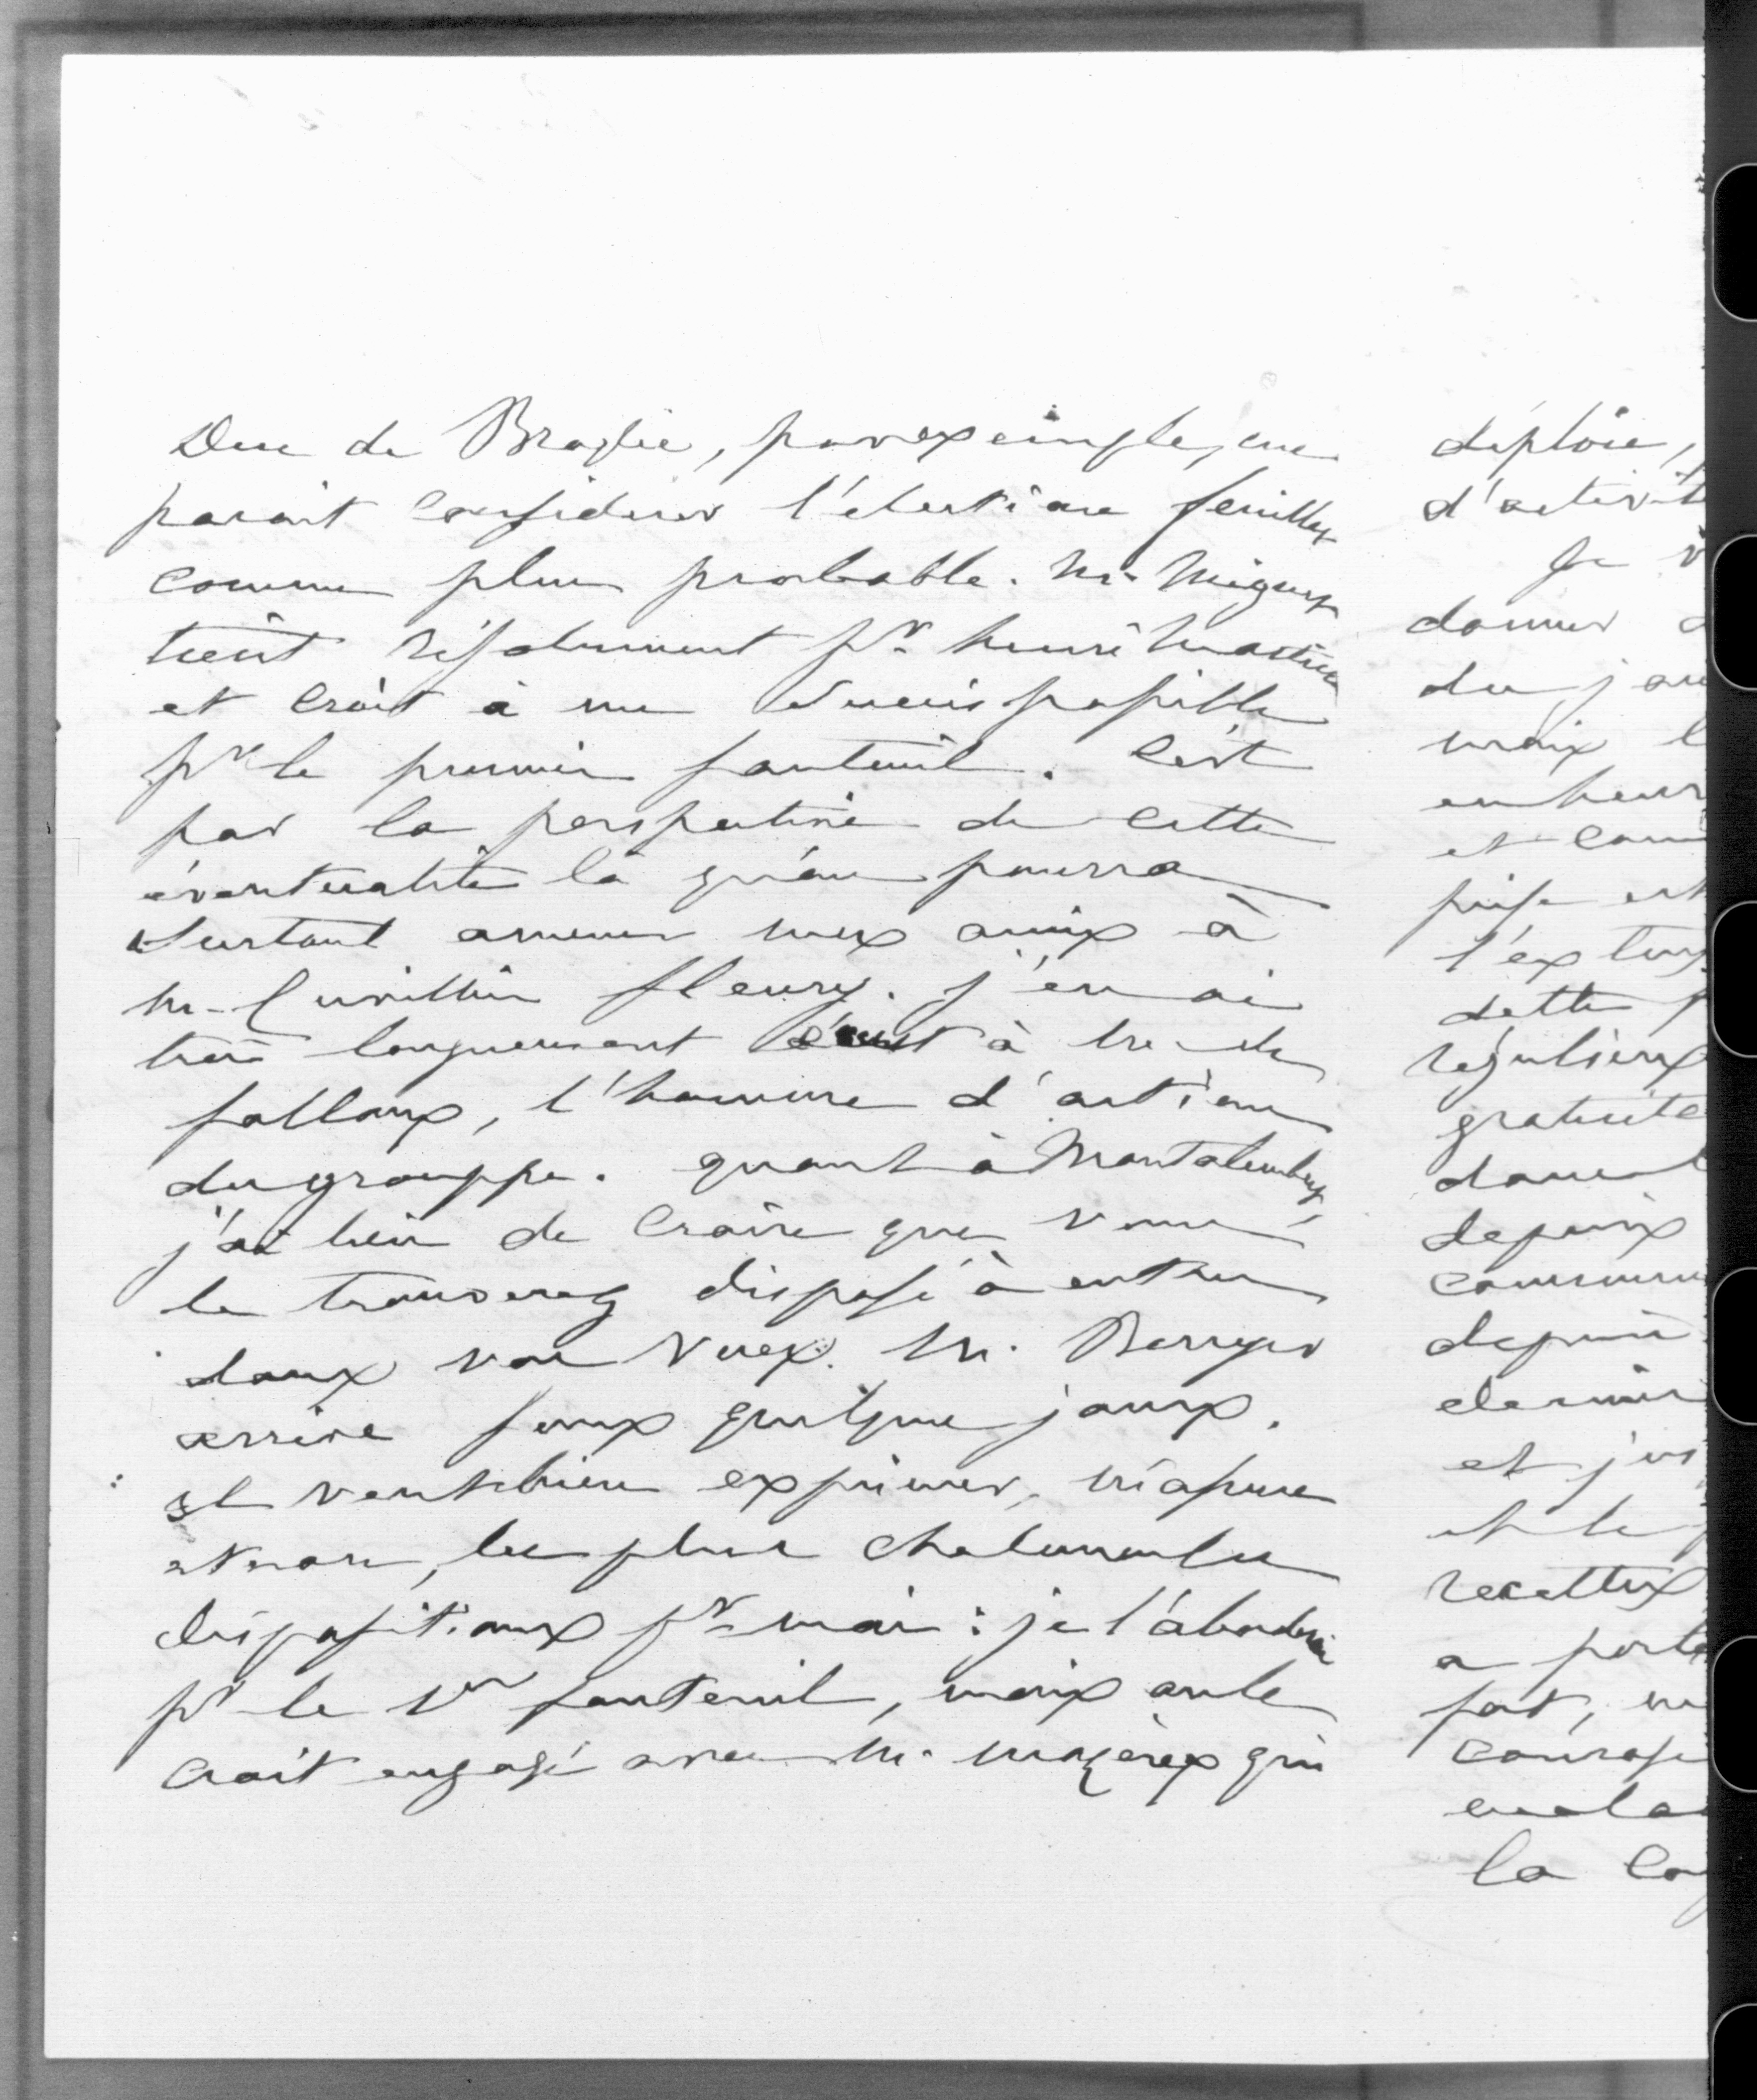 Duc de Broglie, par exemple, me
parait considérer l'élection feuillet
comme plus probable. M. Mignet
tient résolument pr henri Martin
et croit à un succès possible
pr le premier fauteuil. C'est
par la perspective de cette
éventualité là qu'on pourra
surtout amener mes amis à
M. Cuvillier fleury. j'en ai
très longuement écrit à Mr de
falloux, l'homme d'action
du grouppe. quant à Montalembert
j'ai lieu de croire que vous
le trouverez disposé à entrer
dans vos vues. M. Berryer
arrive sous quelques jours.
il veut bien exprimer, m'assure
, les plus chaleureuses
dispositions pr moi : je l'aborderai
pr le 1er fauteuil, mais on le
croit engagé avec M. mazères qui
déploie,
d'activit
Je v
donner
du jou
mais l
en heur
et com
puise est
l'ex
dette p
réguliers
gratuite
dans l
depuis
commun
depuis
dernier
et jus
et le
recettes
a porté
fort, un
courage
la